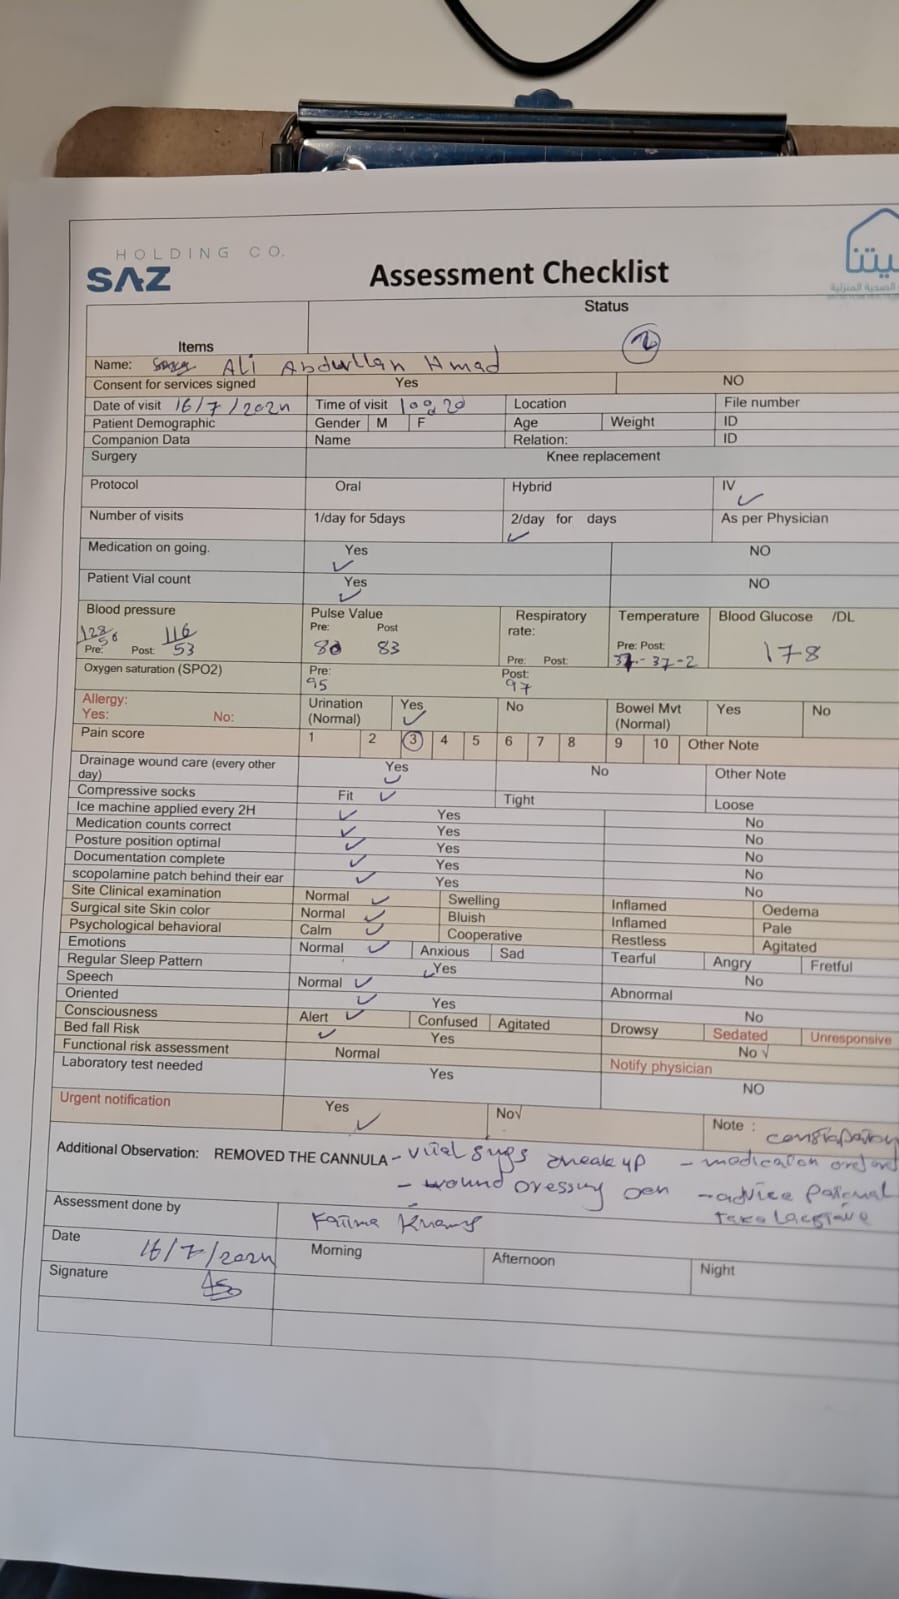 HOLDING CO.
SAZ
Assessment Checklist
الصحية المنزلية
Items Status
2
Name: Ali Abdullah Hmad
Consent for services signed Yes NO
Date of visit 16/7/2024 Time of visit Location File number
Patient Demographic Gender M F Age Weight ID
Companion Data Name Relation: ID
Surgery Knee replacement
Protocol Oral Hybrid IV ✓
Number of visits 1/day for 5days 2/day for days ✓ As per Physician
Medication on going. Yes ✓ NO
Patient Vial count Yes ✓ NO
Blood pressure Pulse Value Respiratory rate: Temperature Blood Glucose /DL
Pre: 128/56 Post: 116/53 Pre: 80 Post 83 Pre: Post: Pre: Post: 37.- 37-2 178
Oxygen saturation (SPO2) Pre: 95 Post: 97
Allergy: Yes: No: Urination (Normal) Yes ✓ No Bowel Mvt (Normal) Yes No
Pain score 1 2 3 4 5 6 7 8 9 10 Other Note
Drainage wound care (every other day) Yes ✓ No Other Note
Compressive socks Fit ✓ Tight Loose
Ice machine applied every 2H ✓ Yes No
Medication counts correct ✓ Yes No
Posture position optimal ✓ Yes No
Documentation complete ✓ Yes No
scopolamine patch behind their ear ✓ Yes No
Site Clinical examination Normal ✓ Swelling Inflamed Oedema
Surgical site Skin color Normal ✓ Bluish Inflamed Pale
Psychological behavioral Calm ✓ Cooperative Restless Agitated
Emotions Normal ✓ Anxious Sad Tearful Angry Fretful
Regular Sleep Pattern ✓ Yes No
Speech Normal ✓ Abnormal
Oriented ✓ Yes No
Consciousness Alert ✓ Confused Agitated Drowsy Sedated Unresponsive
Bed fall Risk ✓ Yes No √
Functional risk assessment Normal Notify physician
Laboratory test needed Yes NO
Urgent notification Yes ✓ No√ Note :
Additional Observation: REMOVED THE CANNULA - vital
- wound - advice
Assessment done by
Date 16/7/2024 Morning Afternoon Night
Signature